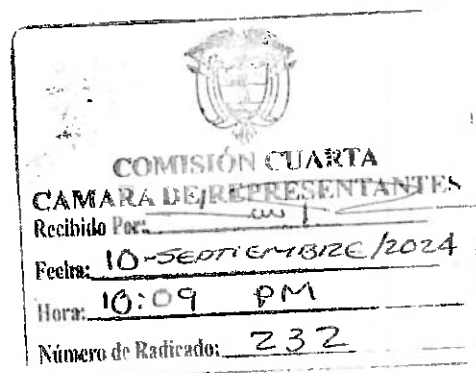 COMISIÓN CUARTA
CAMARA DE REPRESENTANTES
Recibido Por:
Fecha: 10-SEPTIEMBRE/2024
Hora: 10:09 PM
Número de Radicado: 232